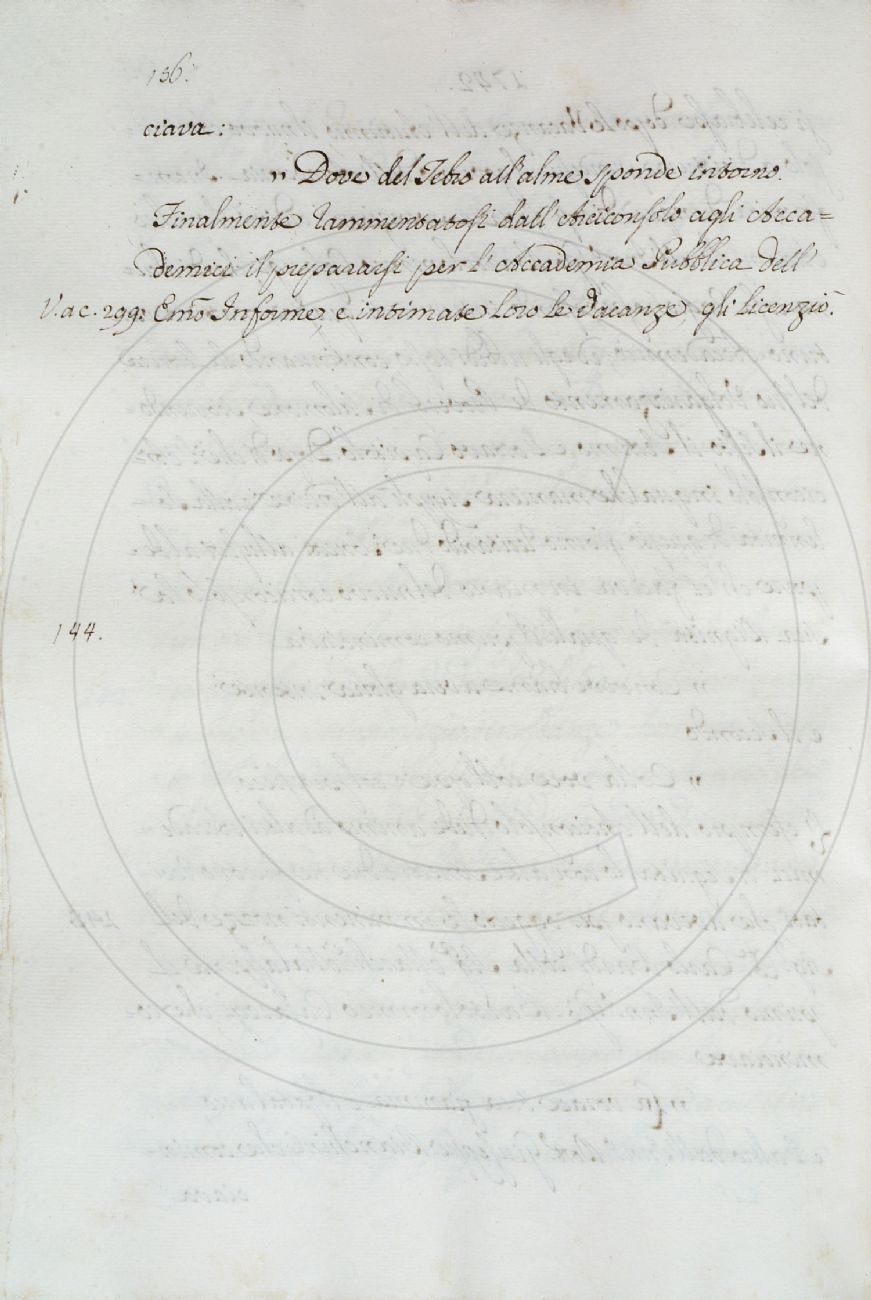 136.
ciava:
" Dove del Tebro all'alme sponde intorno.
Finalmente rammentatosi dall'Arciconsolo agli Acca=
demici il prepararsi per l'Accademia Pubblica dell'
V. a c. 299: Emo Informe, e intimate loro le vacanze, gli licenziò.
144.